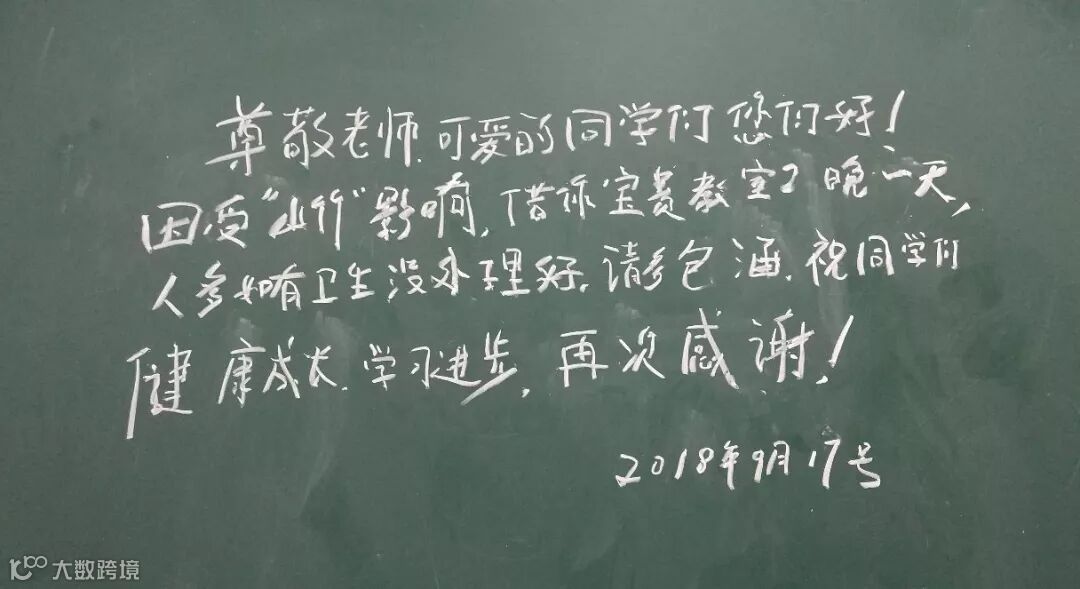 尊敬老师.可爱的同学们您们好!
因受“山竹”影响,借你宝贵教室了晚一天,
人多如有卫生没处理好.请多包涵.祝同学们
健康成长.学习进步,再次感谢!
2018年9月17号
大数跨境